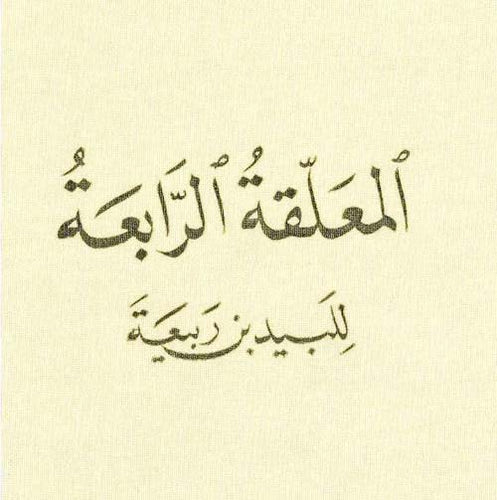 ٱلمعَلّقةُ ٱلرَّابعَةُ
لِلَبيد بن رَبيعَةَ